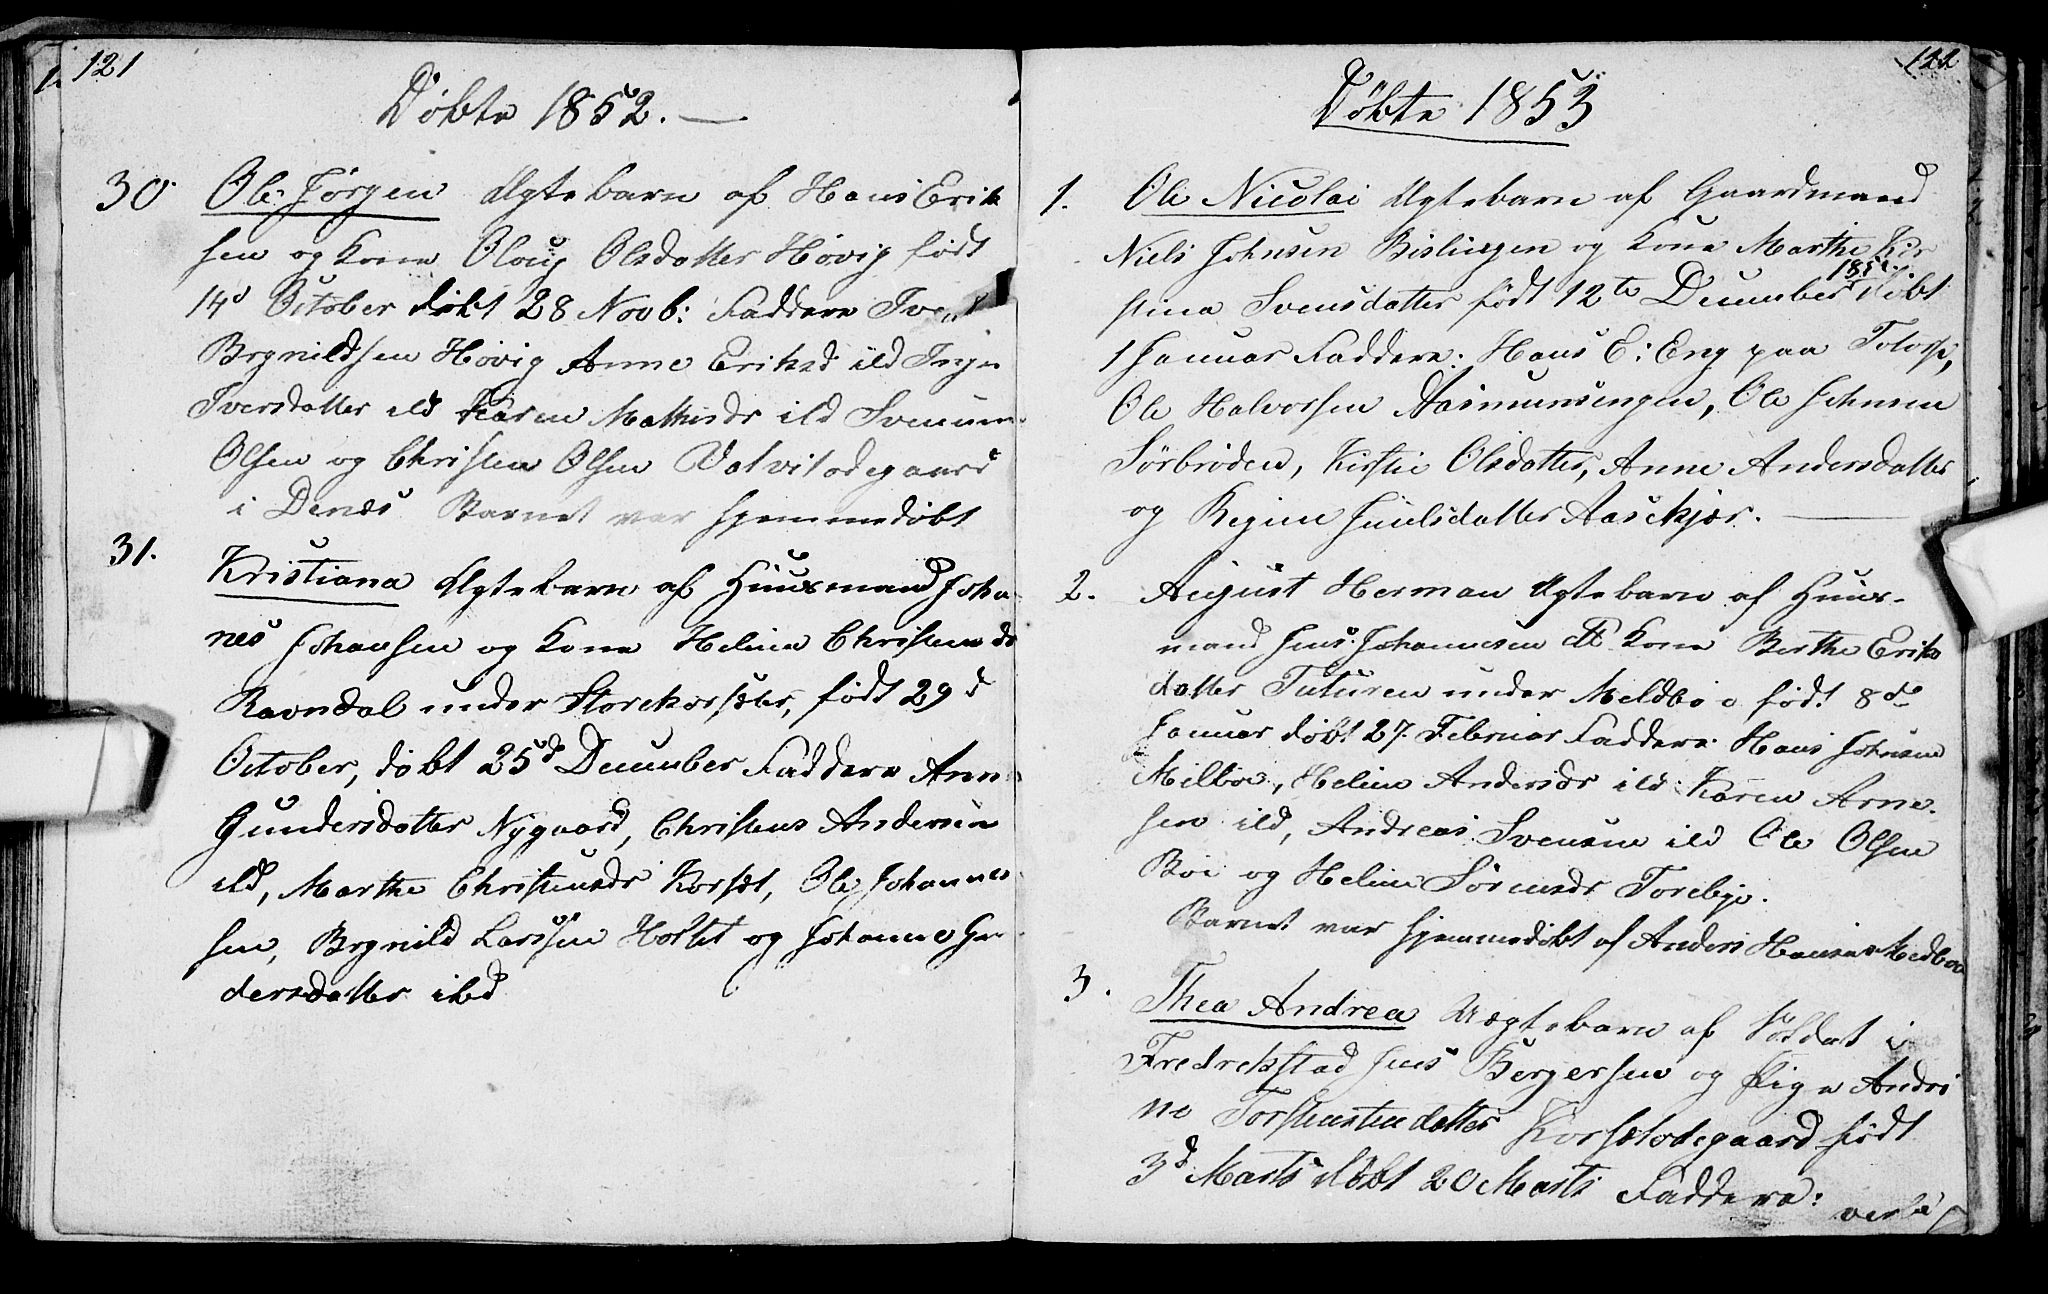 121
Døbte 1852.
30 Ole Jørgen Ægtebarn af Hans Erik
sen og Kone Oloug Olsdatter Høvig født
14d October døbt 28 Novb: Faddere
Brynildsen Høvig Anne Eriksd ild
Iversdatter ild Karen Mathisdr ild
Olsen og Christen Olsen
i Denæs Barnet var hjemmedøbt
31. Kristiana Ægtebarn af Huusmand Joha
nes Johansen og Kone Heline Christensdr
Ravndal under Storekorsæter, født 29d
October, døbt 25d December Faddere Anne
Gundersdatter Nygaard, Christens Andersen
ild, Marthe Christensdr Korsæt, Ole Johannes
sen, Brynild Larssen Holtet og Johanne Gu
dersdatter ibd
122
Døbte 1853
1. Ole Nicolai Ægtebarn af Gaardmand
Niels Johnsen Bislingen og Kone Marthe Kir
stina Svensdatter født 12te December 1852. døbt
1 Januar Faddere: Hans E: Eng paa
Ole Halvorsen Aasmunsengen, Ole Johnsen
Sørbrøden, Kirstie Olsdatter, Anne Andersdatter
og Regine Juulsdatter Aasekjær.
2. August Herman Ægtebarn af Huus-
mand Jens Johannesen & Kone Berthe Eriks
datter Tuturen under Meldbø født 8de
Januar døbt 27 Februar Faddere Hans Johnsen
Melboe, Heline Andersdr ild Karen Arne-
sen ild, Andreas Svensen ild Ole Olsen
Boe og Heline Sørensdr Torebye.
Barnet var hjemmedøbt af Anders Hansen Medboe
3. Thea Andrea Uægtebarn af Soldat i
Fredrekstad Jens Bergersen og Pige Andri
ne Torstenstendatter Korsætødegaard født
3d Marts døbt 20 Marts Faddere: